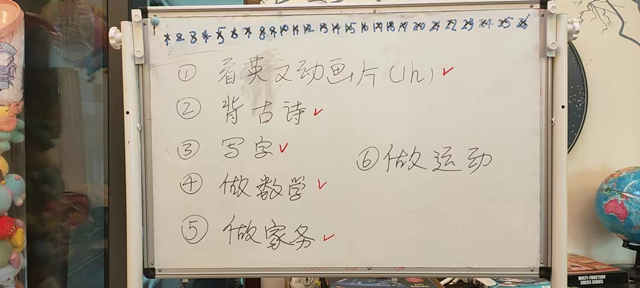 1 2 3 4 5 6 7 8 9 10 11 12 13 14 15 16 17 18 19 20 21 22 23 24 25 26
① 看英文动画片(1h)✓
② 背古诗✓
③ 写字✓
④ 做数学✓
⑤ 做家务✓
⑥ 做运动